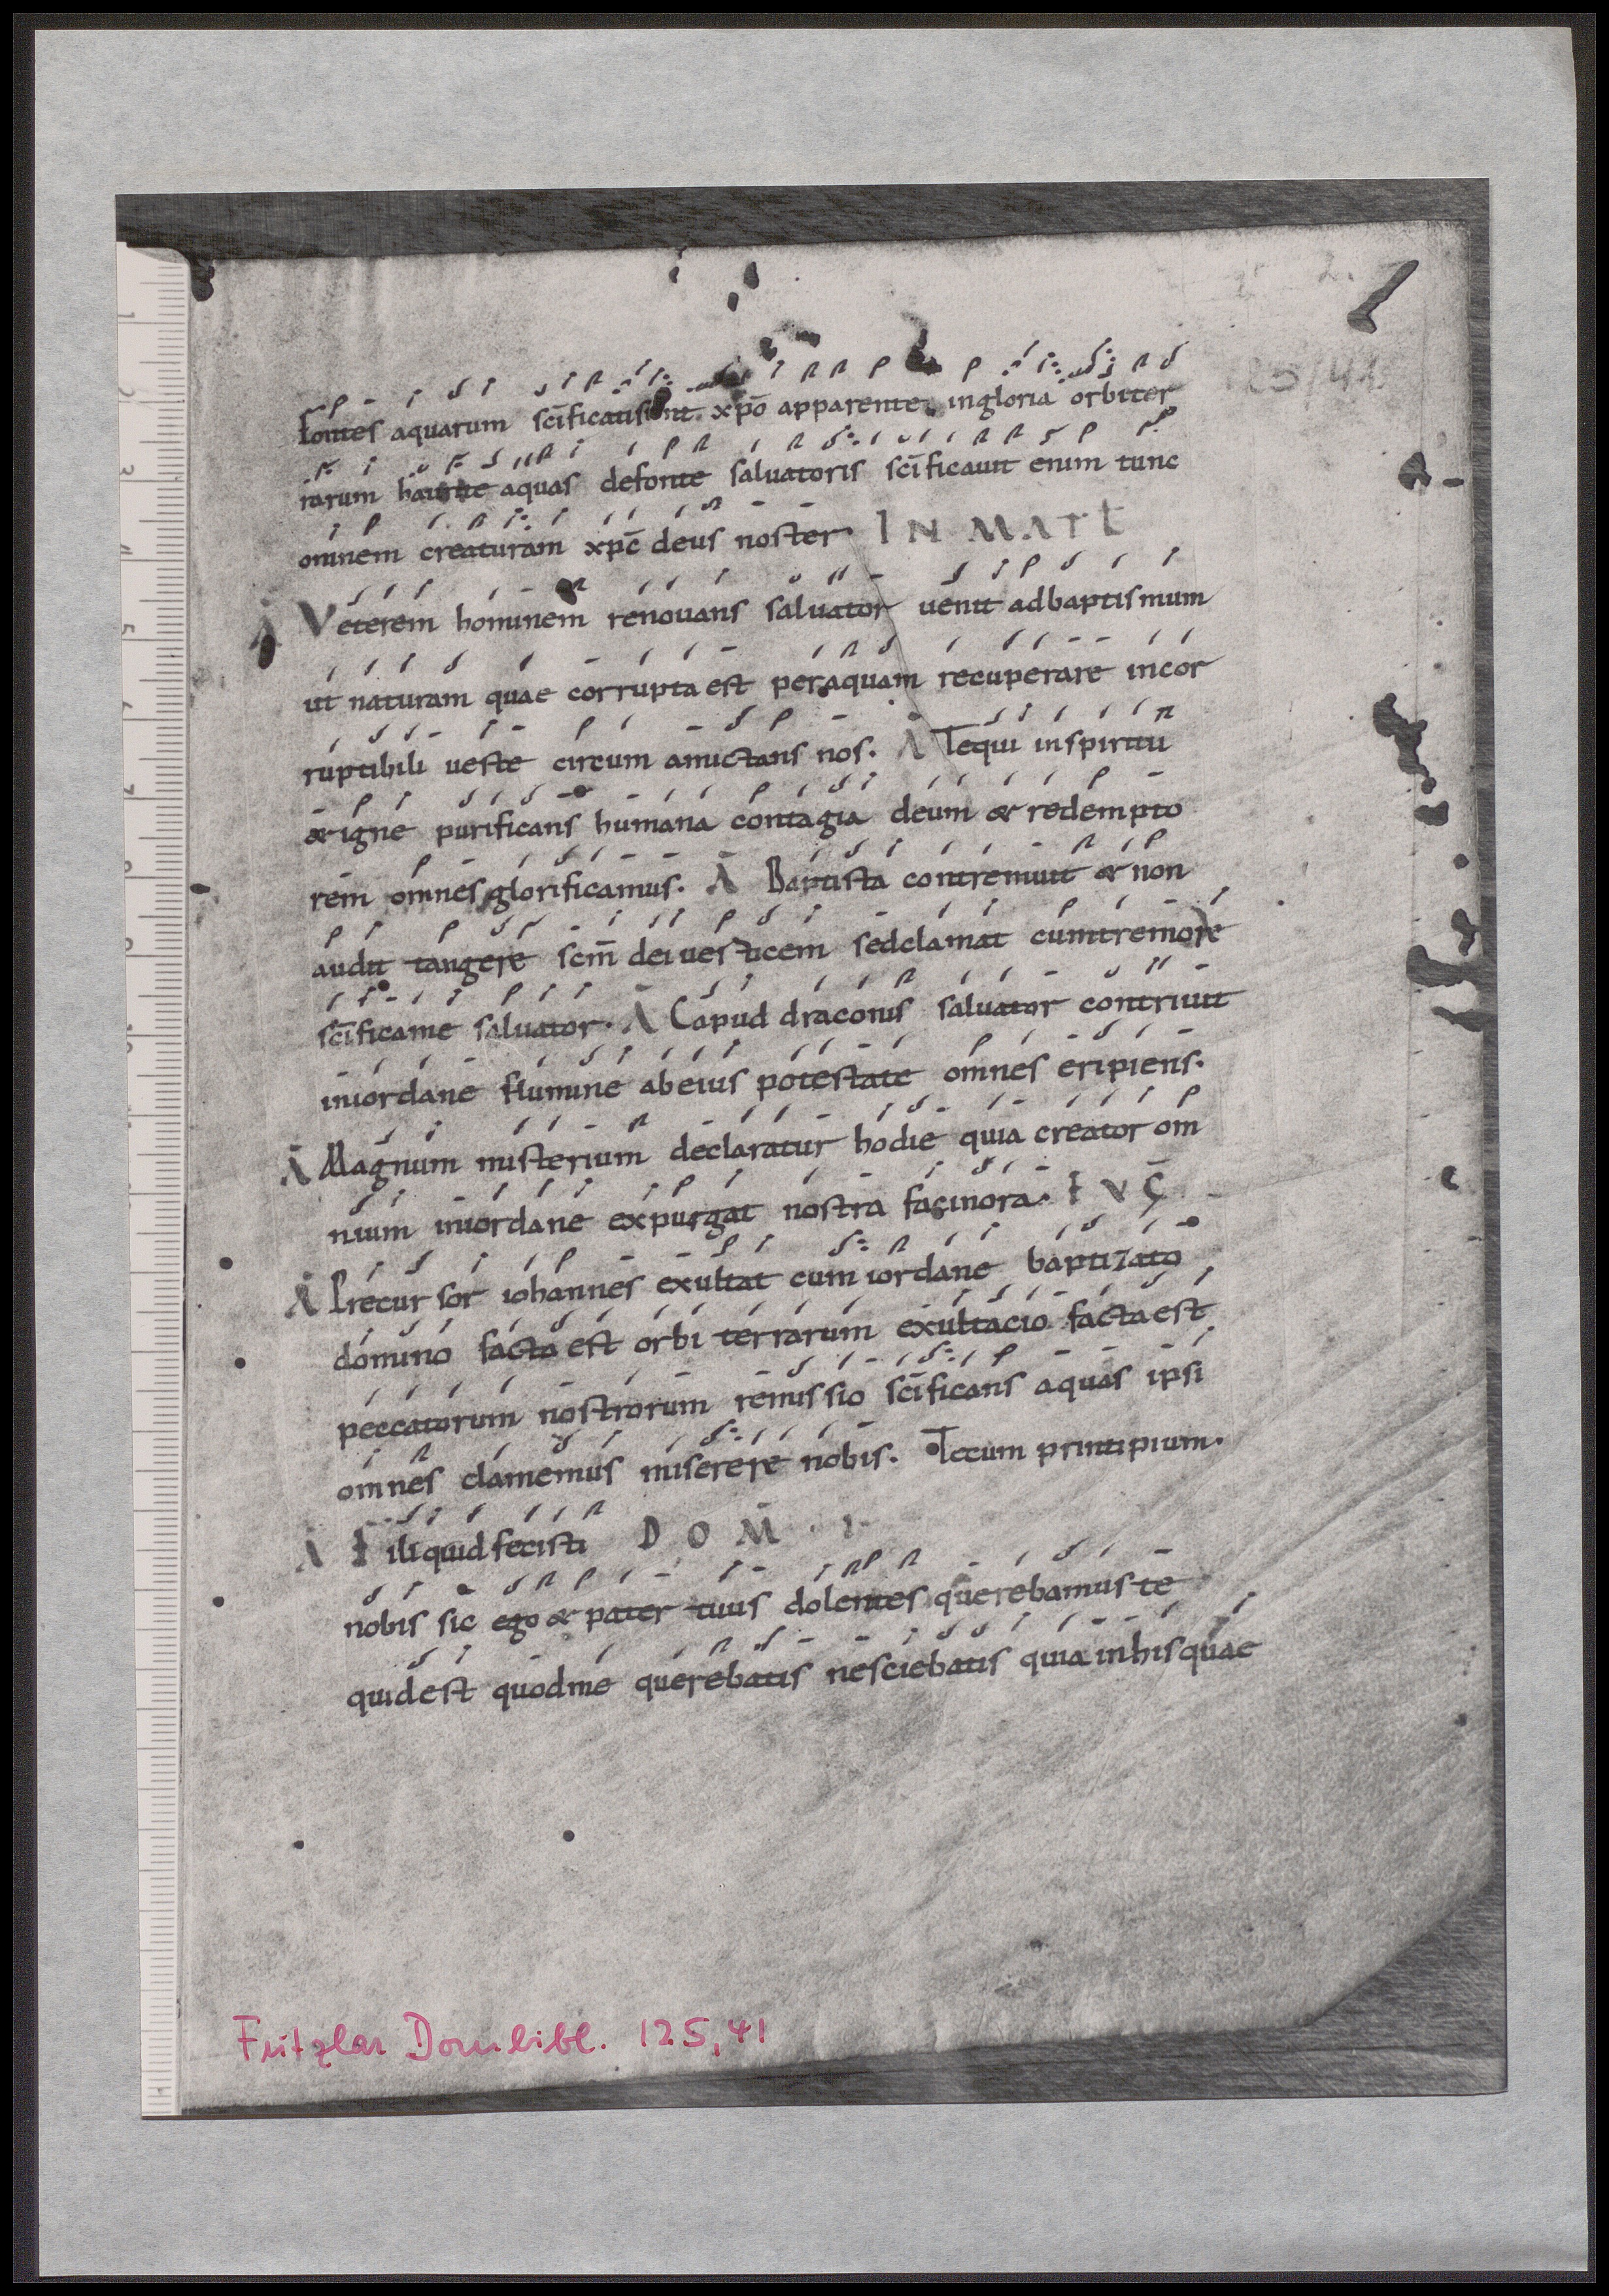 1
125/41
fontes aquarum scīficati sunt xpō apparente in gloria orbiter
rarum haurite aquas defonte saluatoris scīficauit enim tunc
omnem creaturam xpc̄ deus noster· IN MATL
A Veterem hominem renouans saluator uenit adbaptismum
ut naturam quae corrupta est peraquam recuperare incor
ruptibili ueste circum amictans nos· A Tequi inspiritu
& igne purificans humana contagia deum & redempto
rem omnes glorificamus· A Baptista contremuit & non
audit tangere scm̄ dei uerticem sedclamat cumtremore
scīficame saluator· A Capud draconis saluator contriuit
iniordane flumine abeius potestate omnes eripiens·
A Magnum misterium declaratur hodie quia creator om
nium iniordane expurgat nostra facinora· EVG
A Precursor iohannes exultat cum iordane baptizato
domino facta est orbi terrarum exultacio facta est
peccatorum nostrorum remissio scīficans aquas ipsi
omnes clamemus miserere nobis· Tecum printipium·
A Fili quid fecisti DOM · I·
nobis sic ego & pater tuus dolentes querebamus te
quidest quodme querebatis nesciebatis quia inhisquae
Fritzlar Dombibl. 125,41